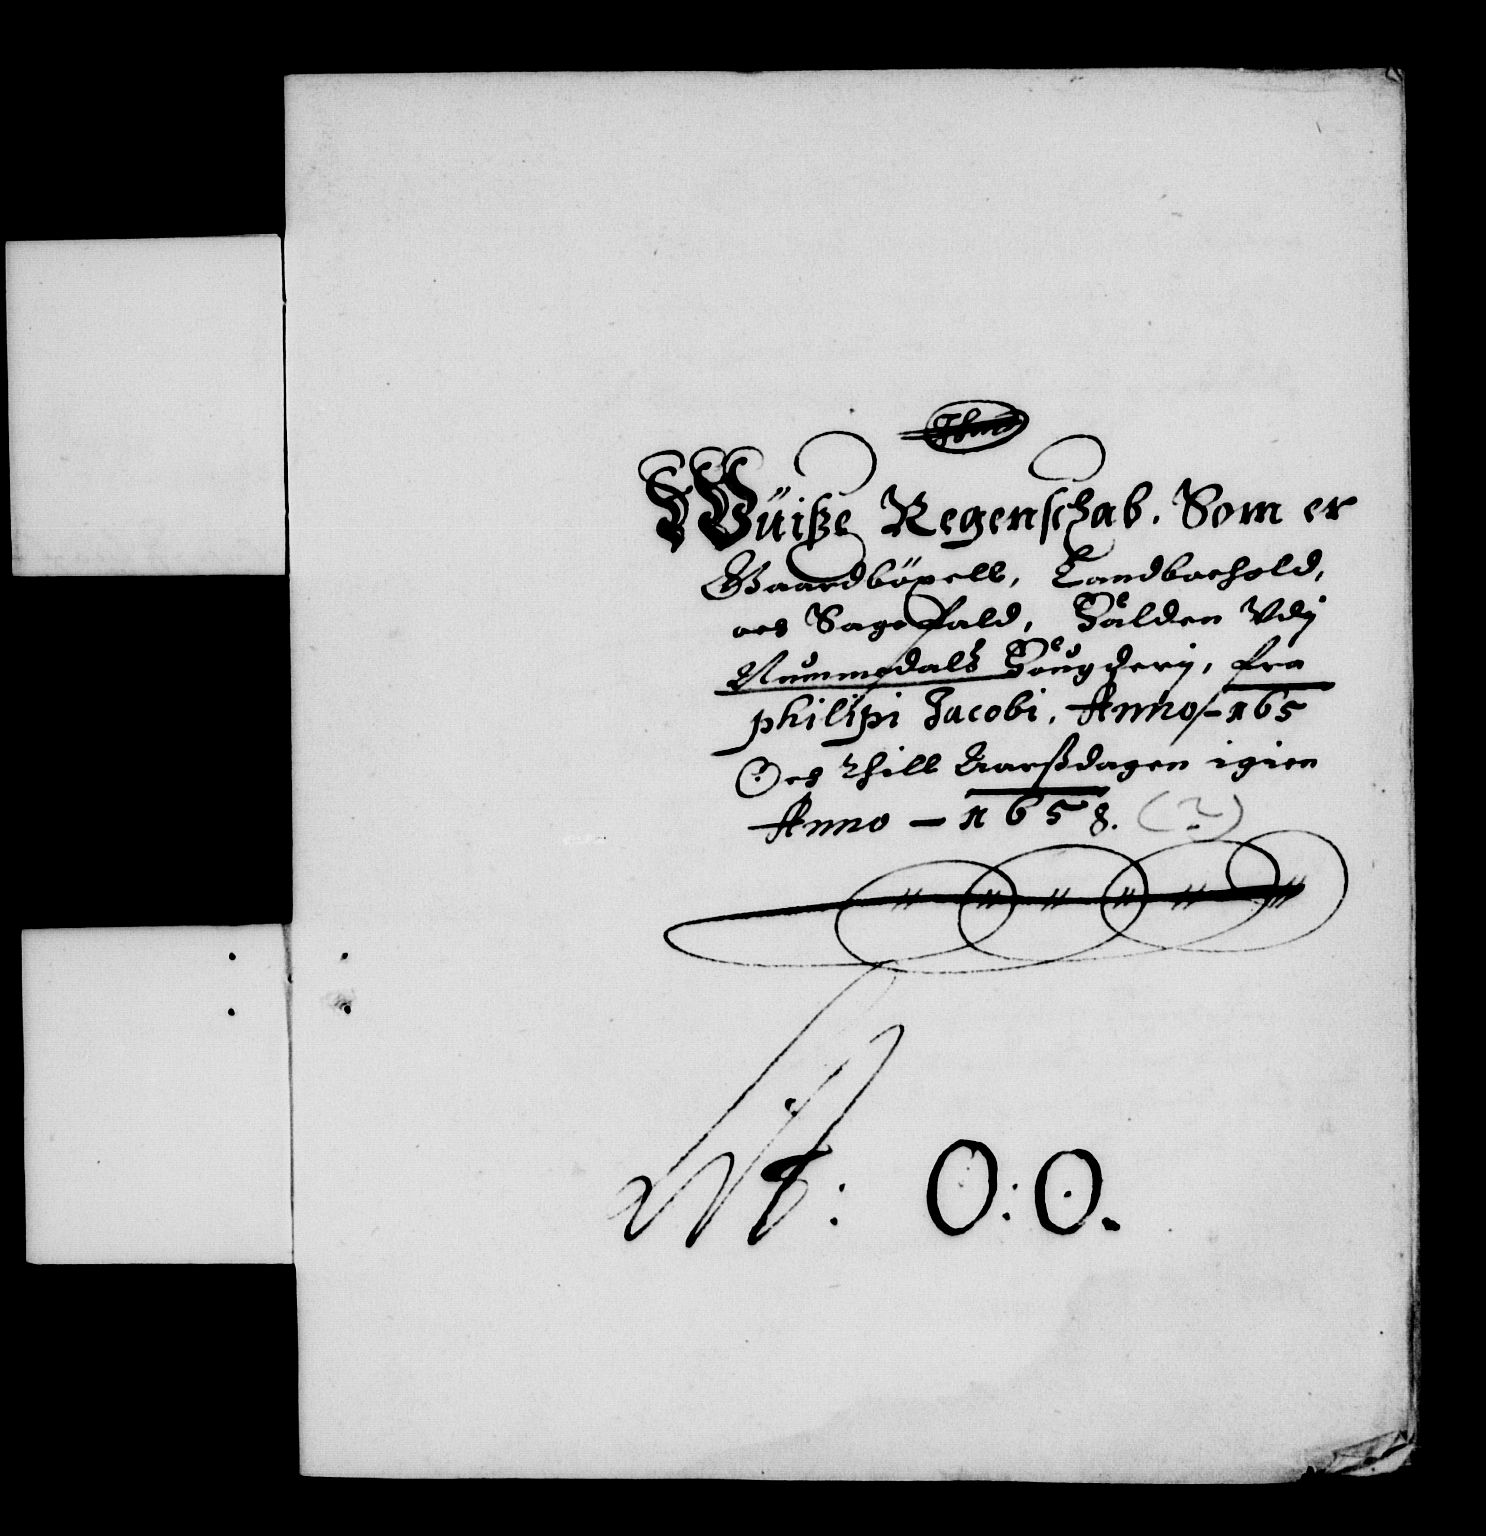 Wüiße Regenschab. Som er
Gaardböxell, Landbochold,
och Sagefald, Falden Udj
Nummedalß Fougderij, fra
philipi Jacobi, Anno - 165
Och Thill Aarßdagen igien
Anno - 1658. (?)
Lit: O: O.